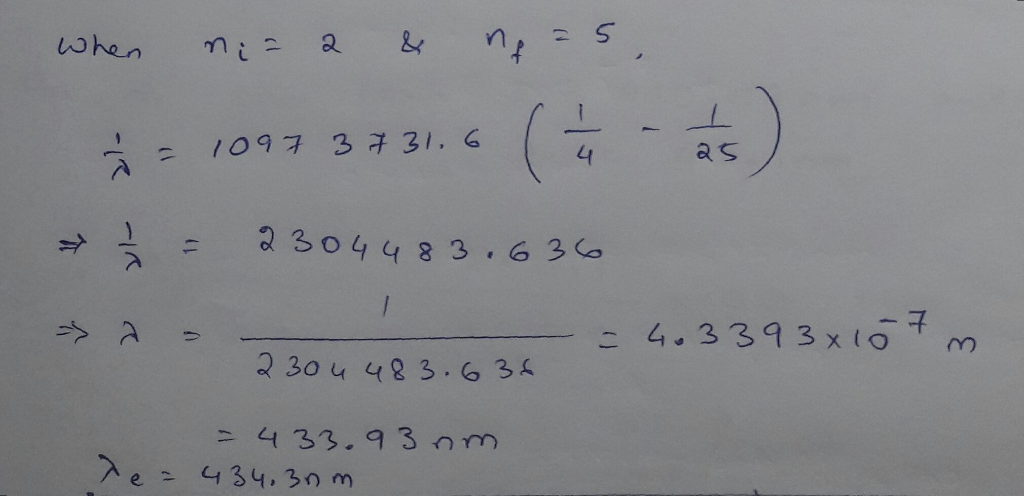 When n_i = 2 & n_f = 5,
1/λ = 10973731.6 (1/4 - 1/25)
⇒ 1/λ = 2304483.636
⇒ λ = 1/2304483.636 = 4.3393 x 10^-7 m
= 433.93 nm
λe = 434.3nm